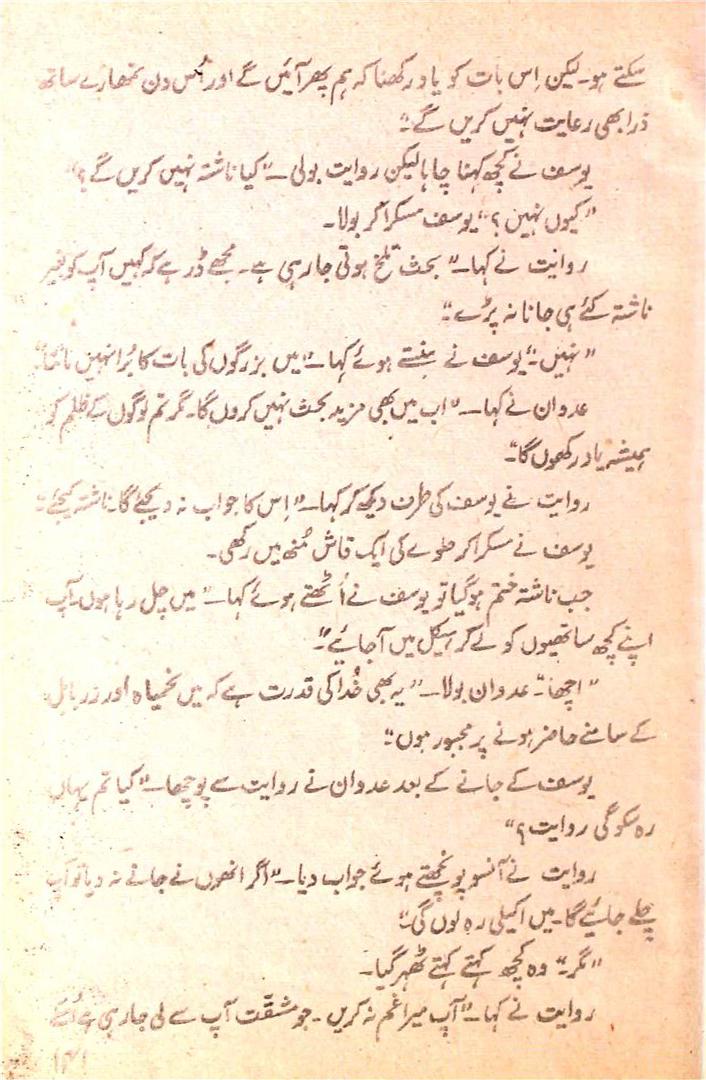 سکتے ہو۔ لیکن اِس بات کو یاد رکھنا کہ ہم پھر آئیں گے اور اُس دن تمھارے ساتھ
ذرا بھی رعایت نہیں کریں گے۔"
یوسف نے کچھ کہنا چاہا لیکن روایت بولی۔ "کیا ناشتہ نہیں کریں گے؟"
"کیوں نہیں؟" یوسف مسکرا کر بولا۔
روایت نے کہا۔ "بحث تلخ ہوتی جا رہی ہے۔ مجھے ڈر ہے کہ کہیں آپ کو بغیر
ناشتہ کئے ہی جانا نہ پڑے۔"
"نہیں۔" یوسف نے ہنستے ہوئے کہا۔ "میں بزرگوں کی بات کا بُرا نہیں مانتا۔"
عدوان نے کہا۔ "اب میں بھی مزید بحث نہیں کروں گا۔ مگر تم لوگوں کے ظلم کو
ہمیشہ یاد رکھوں گا۔"
روایت نے یوسف کی طرف دیکھ کر کہا۔ "اِس کا جواب نہ دیجئے گا۔ ناشتہ کیجئے۔"
یوسف نے مسکرا کر حلوے کی ایک قاش مُنھ میں رکھی۔
جب ناشتہ ختم ہو گیا تو یوسف نے اُٹھتے ہوئے کہا۔ "میں چل رہا ہوں۔ آپ
اپنے کچھ ساتھیوں کو لے کر ہیکل میں آ جائیے۔"
"اچھا۔" عدوان بولا۔ "یہ بھی خُدا کی قدرت ہے کہ میں نحمیاہ اور زربابل
کے سامنے حاضر ہونے پر مجبور ہوں۔"
یوسف کے جانے کے بعد عدوان نے روایت سے پوچھا۔ "کیا تم یہاں
رہ سکو گی روایت؟"
روایت نے آنسو پونچھتے ہوئے جواب دیا۔ "اگر انھوں نے جانے نہ دیا تو آپ
چلے جائیے گا۔ میں اکیلی رہ لوں گی۔"
"مگر۔" وہ کچھ کہتے کہتے ٹھہر گیا۔
روایت نے کہا۔ "آپ میرا غم نہ کریں۔ جو مشقّت آپ سے لی جا رہی ہے اُسے